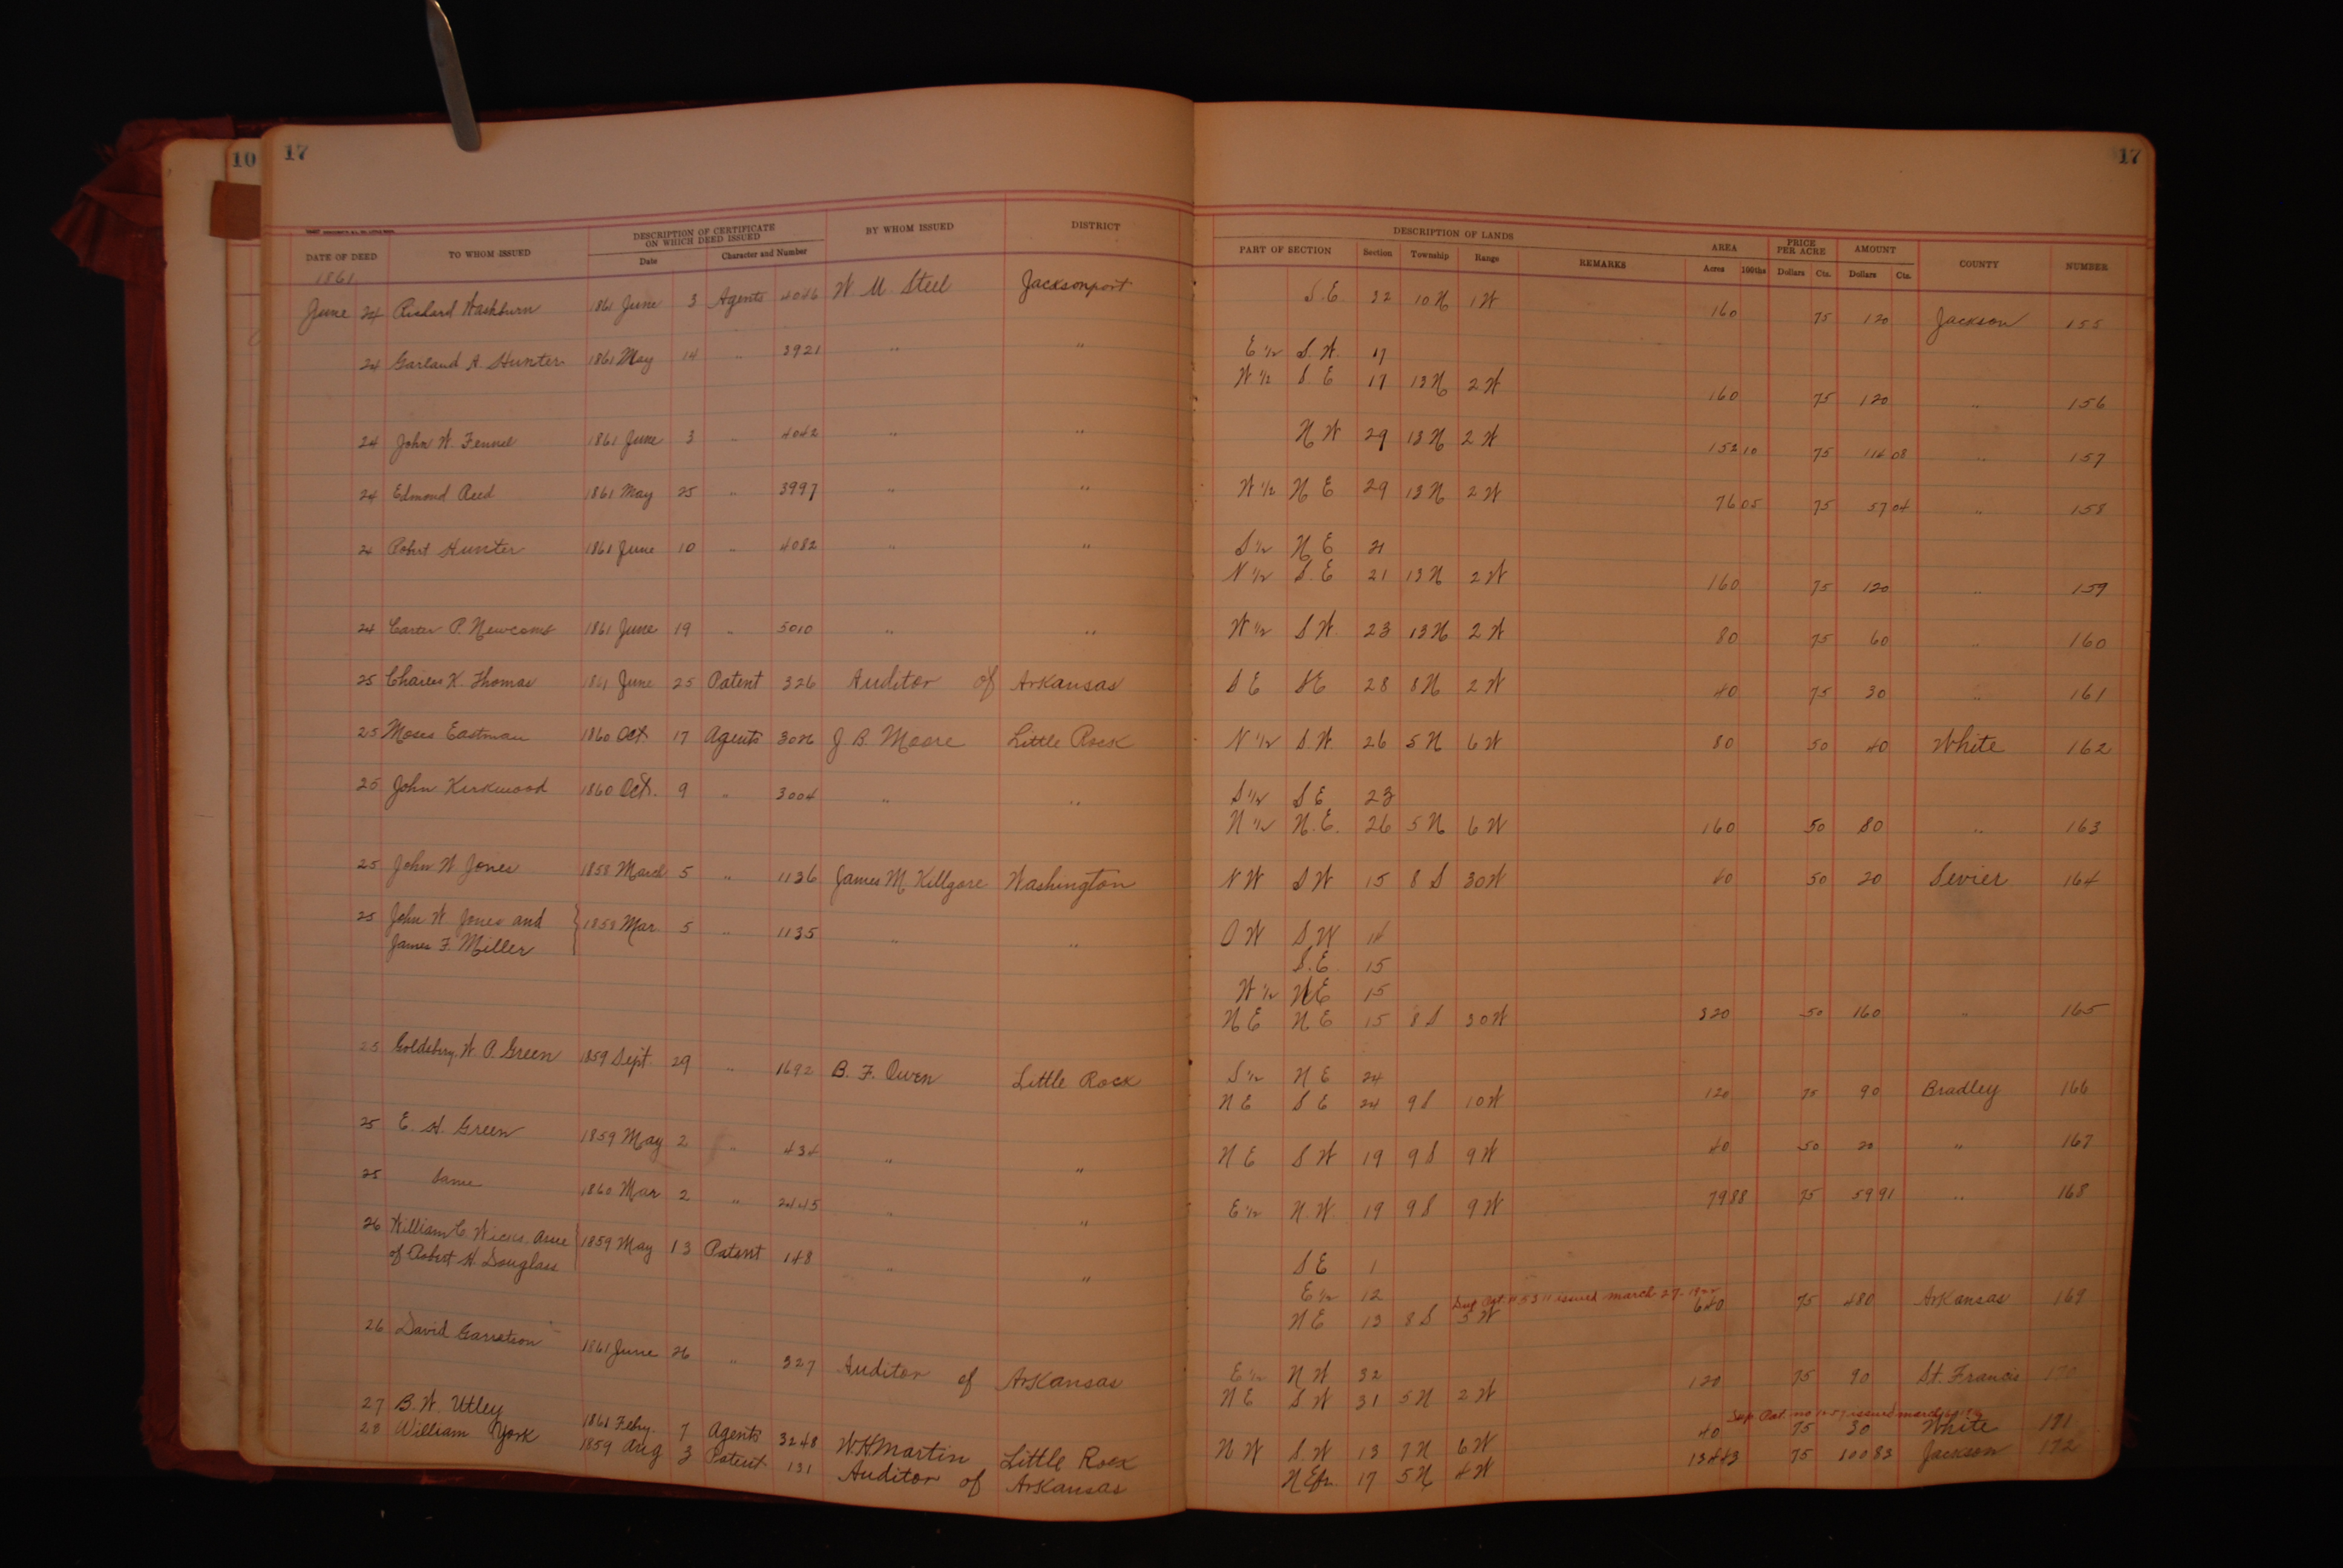 10 17 17
DESCRIPTION OF CERTIFICATE ON WHICH DEED ISSUED BY WHOM ISSUED DISTRICT DESCRIPTION OF LANDS AREA PRICE PER ACRE AMOUNT
DATE OF DEED TO WHOM ISSUED Date Character and Number PART OF SECTION Section Township Range REMARKS Acres 100ths Dollars Cts. Dollars Cts. COUNTY NUMBER
1861
June 24 Richard Washburn 1861 June 3 Agents 4046 W M Steel Jacksonport S.E 32 10 N 1 W 160 75 120 Jackson 155
24 Garland A. Hunter 1861 May 14 " 3921 " " E 1/2 S.W. 17
W 1/2 S.E 17 13 N 2 W 160 75 120 " 156
24 John W. Fennel 1861 June 3 " 4042 " " N W 29 13 N 2 W 152 10 75 114 08 " 157
24 Edmond Reed 1861 May 25 " 3997 " " W 1/2 N E 29 13 N 2 W 76 05 75 57 04 " 158
24 Robert Hunter 1861 June 10 " 4082 " " S 1/2 N E 21
N 1/2 S.E 21 13 N 2 W 160 75 120 " 159
24 Carter P. Newcomb 1861 June 19 " 5010 " " W 1/2 S W. 23 13 N 2 W 80 75 60 " 160
25 Charles K. Thomas 1861 June 25 Patent 326 Auditor of Arkansas S E S E 28 8 N 2 W 40 75 30 " 161
25 Moses Eastman 1860 Oct. 17 Agents 3026 J B. Moore Little Rock N 1/2 S.W. 26 5 N 6 W 80 50 40 White 162
25 John Kirkwood 1860 Oct. 9 " 3004 " " S 1/2 S E 23
N 1/2 N.E. 26 5 N 6 W 160 50 80 " 163
25 John W Jones 1858 March 5 " 1136 James M Killgore Washington N W S W 15 8 S 30 W 40 50 20 Sevier 164
25 John W Jones and 1858 Mar. 5 " 1135 " " S W S W 14
James F. Miller S.E. 15
W 1/2 N E 15
N E N E 15 8 S 30 W 320 50 160 " 165
25 Goldsbery W. P. Green 1859 Sept. 29 " 1692 B. F. Owen Little Rock S 1/2 N E 24
N E S E 24 9 S 10 W 120 75 90 Bradley 166
25 E. H. Green 1859 May 2 " 434 " " N E S W 19 9 S 9 W 40 50 20 " 167
25 Same 1860 Mar 2 " 2445 " " E 1/2 N W. 19 9 S 9 W 79 88 75 59 91 " 168
26 William C. 1859 May 13 Patent 148 " " S E 1
of Robert H. Douglass E 1/2 12 issued march 27-
N E 13 8 S 3 W 640 75 480 Arkansas 169
26 David Garretson 1861 June 26 " 327 Auditor of Arkansas E 1/2 N W 32
N E S W 31 5 N 2 W 120 75 90 St. Francis 170
27 B. W. Utley 1861 Feby. 7 Agents 3248 W H Martin Little Rock N W S.W 13 7 N 6 W 40 75 30 White 171
28 William York 1859 Aug 3 Patent 131 Auditor of Arkansas N E fr. 17 5 N 4 W 134 43 75 100 83 Jackson 172